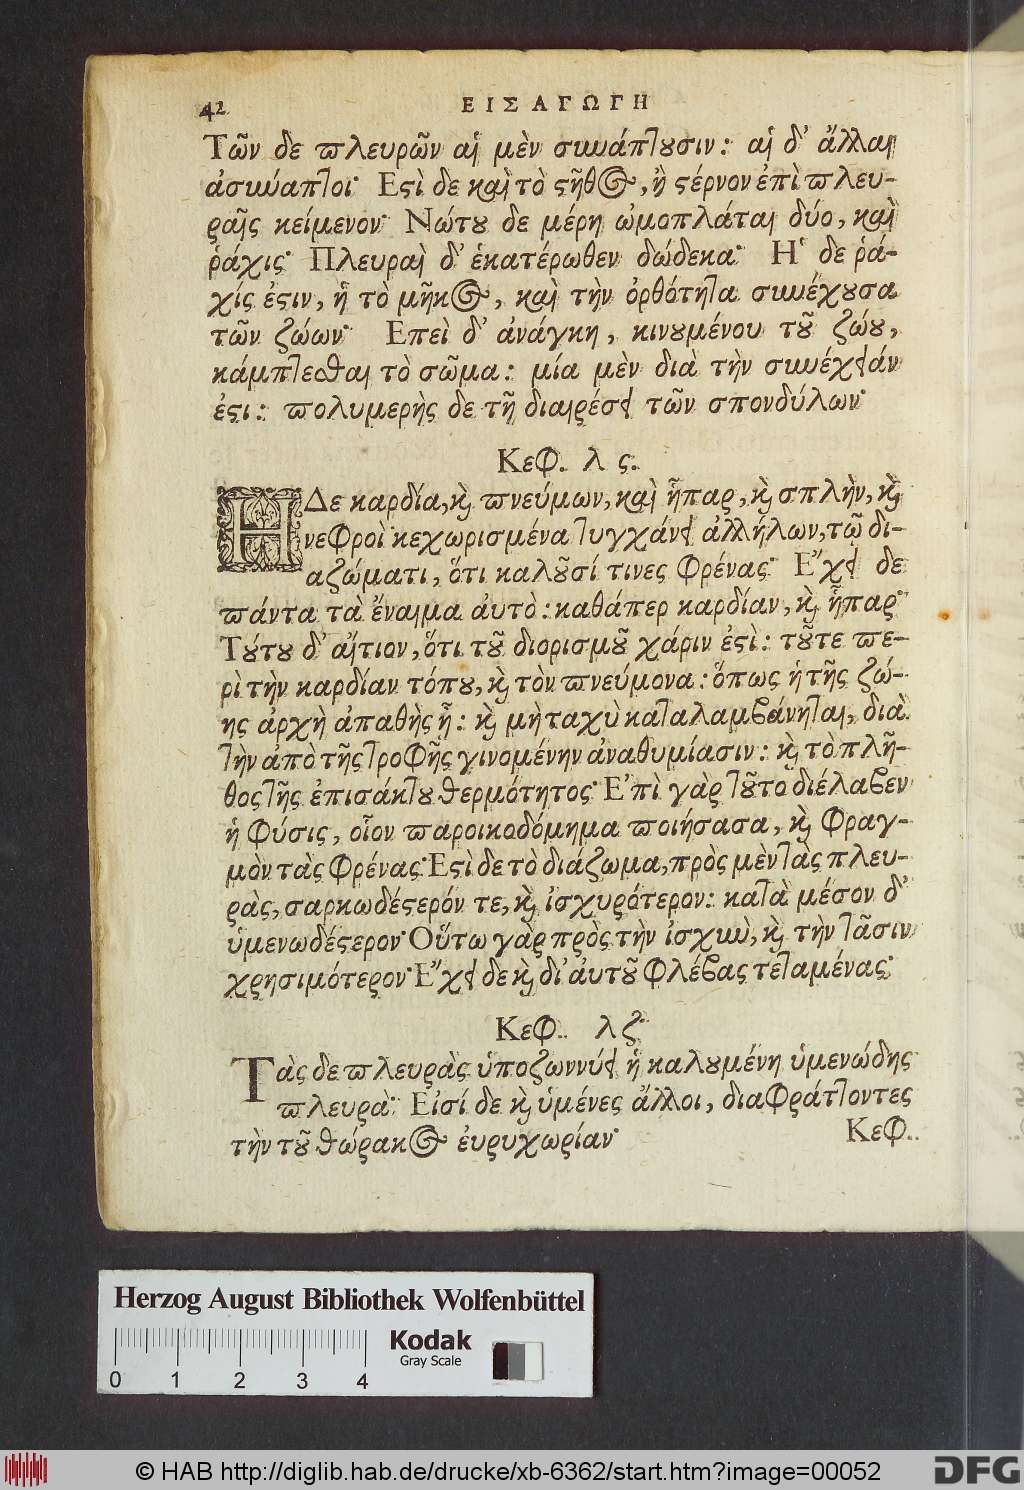 42 ΕΙΣΑΓΩΓΗ
Τῶν δε πλευρῶν αἱ μὲν συνάπτουσιν: αἱ δ' ἄλλαι
ἀσύναπτοι· Εστὶ δε καὶ τὸ στῆθος, ἢ στέρνον ἐπὶ πλευ-
ραῖς κείμενον· Νώτου δε μέρη ὠμοπλάται δύο, καὶ
ῥάχις· Πλευραὶ δ' ἑκατέρωθεν δώδεκα· Η῾ δε ῥά-
χίς ἐστιν, ἡ τὸ μῆκος, καὶ τὴν ὀρθότητα συνέχουσα
τῶν ζώων· Επεὶ δ' ἀνάγκη, κινουμένου τοῦ ζώου,
κάμπτεσθαι τὸ σῶμα: μία μὲν διὰ τὴν συνέχειάν
ἐστι: πολυμερὴς δε τῇ διαιρέσει τῶν σπονδύλων·
Κεφ. λϛ.
Η Δε καρδία, καὶ πνεύμων, καὶ ἧπαρ, καὶ σπλὴν, καὶ
νεφροὶ κεχωρισμένα τυγχάνει ἀλλήλων, τῷ δι-
αζώματι, ὅτι καλοῦσί τινες φρένας· Ε῎χει δε
πάντα τὰ ἔναιμα ἀυτὸ: καθάπερ καρδίαν, καὶ ἧπαρ·
Τούτου δ' αἴτιον, ὅτι τοῦ διορισμοῦ χάριν ἐστὶ: τοῦτε πε-
ρὶ τὴν καρδίαν τόπου, καὶ τὸν πνεύμονα: ὅπως ἡ τῆς ζώ-
ης ἀρχὴ ἀπαθὴς ᾖ: καὶ μὴ ταχὺ καταλαμβάνηται, διὰ
τὴν ἀπὸ τῆς τροφῆς γινομένην ἀναθυμίασιν: καὶ τὸ πλῆ-
θος τῆς ἐπισάκτου θερμότητος· Ε᾿πὶ γὰρ τοῦτο διέλαβεν
ἡ φύσις, οἷον παροικοδόμημα ποιήσασα, καὶ φραγ-
μὸν τὰς φρένας· Εστὶ δε τὸ διάζωμα, πρὸς μὲν τὰς πλευ-
ρὰς, σαρκωδέστερόν τε, καὶ ἰσχυρότερον: κατὰ μέσον δ'
ὑμενωδέστερον· Οὕτω γὰρ πρὸς τὴν ἰσχὺν, καὶ τὴν τᾶσιν
χρησιμότερον· Ε῎χει δε καὶ δι' ἀυτοῦ φλέβας τεταμένας·
Κεφ. λζ·
Τὰς δε πλευρὰς ὑποζωννύει ἡ καλουμένη ὑμενώδης
πλευρὰ· Εἰσί δε καὶ ὑμένες ἄλλοι, διαφράττοντες
τὴν τοῦ θώρακος ἐυρυχωρίαν·
Κεφ.
Herzog August Bibliothek Wolfenbüttel
Kodak
Gray Scale
0 1 2 3 4
© HAB http://diglib.hab.de/drucke/xb-6362/start.htm?image=00052
DFG